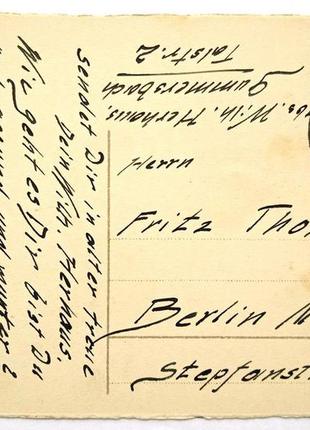 sendet Dir in alter treue
Dein Wilh Herhaus.
Wie geht es Dir bist Du
gesund und munter?
bs. Wilh. Herhaus,
Gummersbach
Talstr. 2
Herrn
Fritz Tho
Berlin
Stepfanst